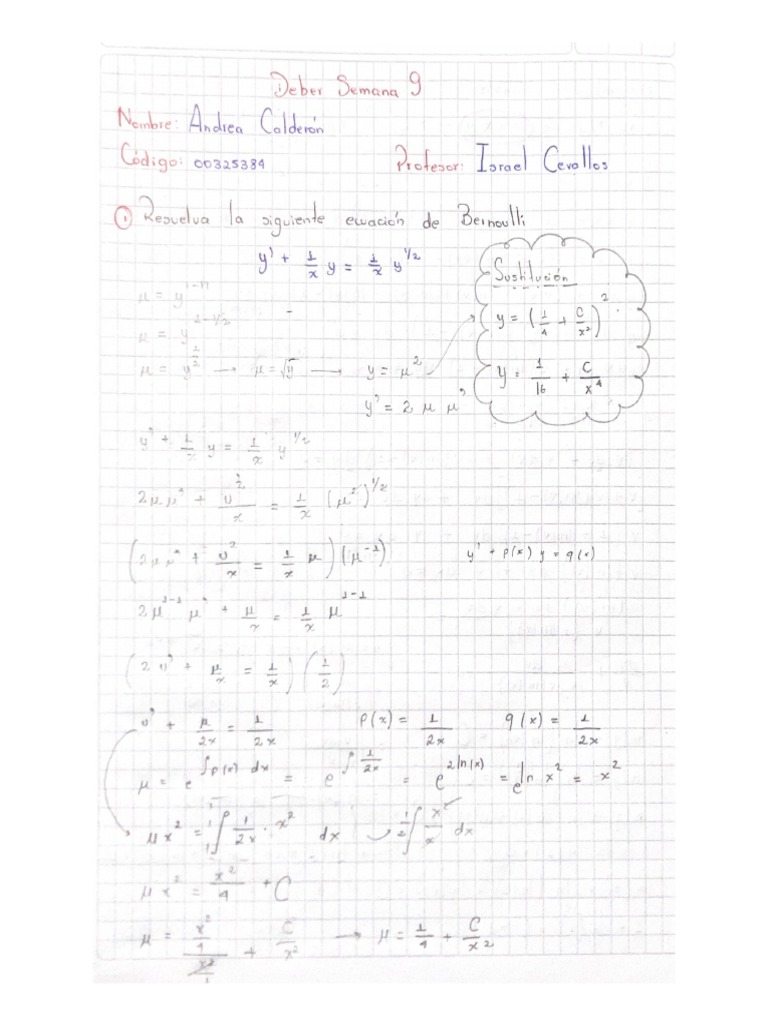 Deber Semana 9
Nombre: Andrea Calderón
Código: 00325384
Profesor: Israel Cevallos
① Resuelva la siguiente ecuación de Bernoulli
y' + 1/x y = 1/x y^1/2
μ = y^1-n
μ = y^1-1/2
μ = y^1/2 → μ = √y → y = μ^2
y' = 2 μ μ'
Sustitución
y = (1/4 + C/x^2)^2
y = 1/16 + C/x^4
y' + 1/x y = 1/x y^1/2
2μμ' + υ^2/x = 1/x (μ^2)^1/2
(2μμ' + υ^2/x = 1/x μ)(μ^-1)
y' + p(x) y = q(x)
2μ^1-1 μ' + μ/x = 1/x μ^1-1
(2υ' + μ/x = 1/x)(1/2)
υ' + μ/2x = 1/2x
P(x) = 1/2x
q(x) = 1/2x
μ = e^∫p(x) dx = e^∫1/2x = e^2ln(x) = e^ln x^2 = x^2
μx^2 = ∫ 1/2x · x^2 dx → 1/2 ∫ x^2/x dx
μx^2 = x^2/4 + C
μ = x^2/4 / x^2/1 + C/x^2 → μ = 1/4 + C/x^2